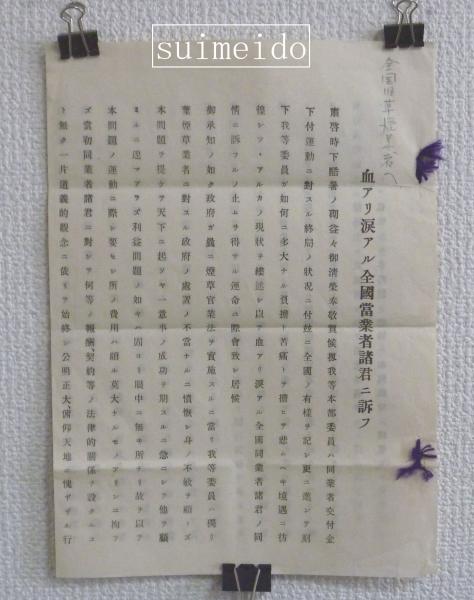 suimeido
全国
血アリ淚アル全國當業者諸君ニ訴フ
肅啓時下酷暑ノ砌益々御淸榮奉敬賀候擬我等本部委員ハ同業者交付金
下付運動ニ對スル終局ノ狀況ニ付玆ニ全國ノ有樣ヲ記シ更ニ進ンデ刻
下我等委員ガ如何ニ多大ナル負擔ト苦痛トヲ擔ヒテ悲ムヘキ境遇ニ彷
徨シツヽアルカノ現狀ヲ縷述シ以テ血アリ淚アル全國同業者諸君ノ同
情ニ訴フルノ止ムヲ得サル運命ニ際會致シ居候
御承知ノ如ク政府ガ曩ニ煙草官業法ヲ實施スルニ當リ我等委員ハ獨リ
葉煙草業者ニ對スル政府ノ處置ノ不當ナルニ憤慨シ身ノ不敏ヲ顧ミズ
本問題ヲ提ケテ天下ニ起ツヤ一意事ノ成功ヲ期スルニ急ニシテ他ヲ顧
ミルニ遑アラズ利益問題ノ如キハ固ヨリ眼中ニ無キ所ナリ故ヲ以テ
本問題ノ運動ニ際シ要セシ所ノ費用ハ頗ル莫大ナルモノアリシニ拘ラ
ズ當初同業者諸君ニ對シテ何等ノ報酬契約等ノ法律的關係ヲ設クルコ
ト無ク一片道義的觀念ニ依リテ始終シ公明正大俯仰天地ニ愧ヂザル行